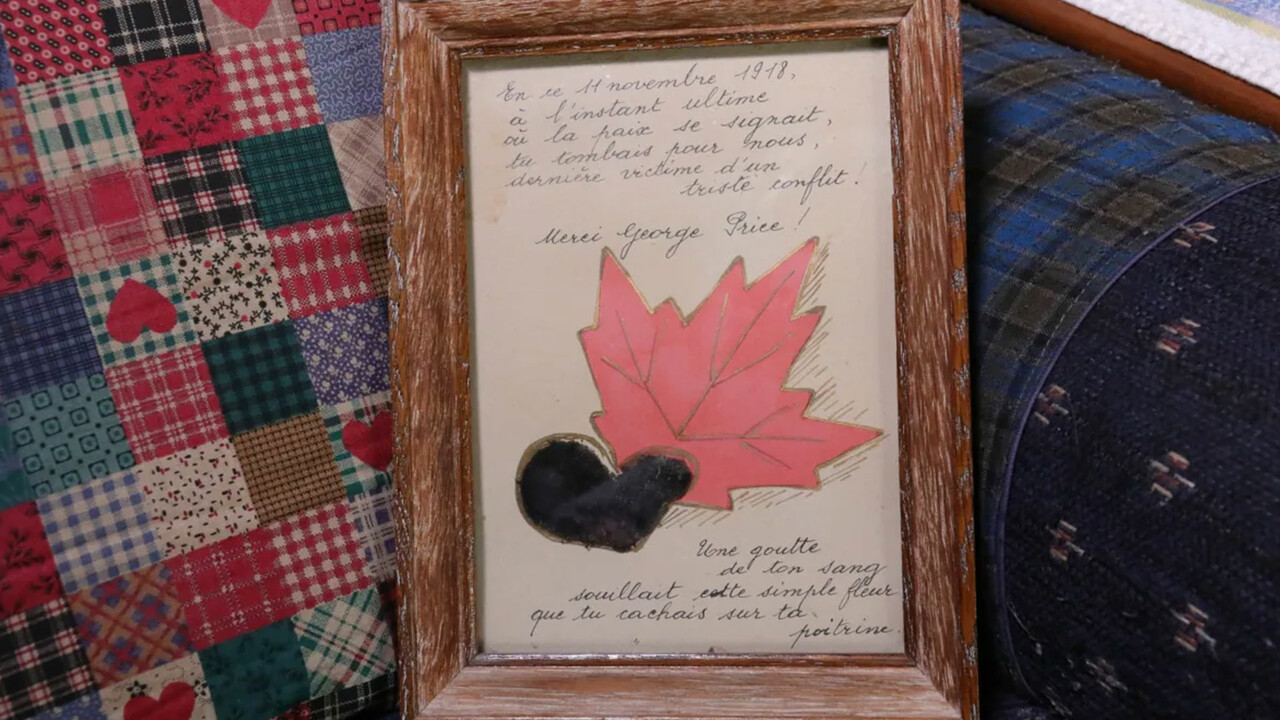 En ce 11 novembre 1918,
à l'instant ultime
où la paix se signait,
tu tombais pour nous,
dernière victime d'un
triste conflit !
Merci George Price !
Une goutte
de ton sang
souillait cette simple fleur
que tu cachais sur ta
poitrine.